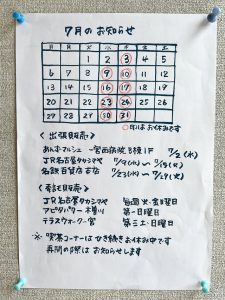 7月のお知らせ
日 月 火 水 木 金 土
1 2 3 4 5
6 7 8 9 10 11 12
13 14 15 16 17 18 19
20 21 22 23 24 25 26
27 28 29 30 31
○印はお休みです
〈出張販売〉
あんずマルシェ 一宮西病院 1F 7/2(水)
JR名古屋タカシマヤ 7/9(水)〜7/15(火)
名鉄百貨店本店 7/23(水)〜7/29(火)
〈委託販売〉
JR名古屋タカシマヤ 毎週火・金曜日
アピタパワー木曽川 第一日曜日
テラスウォーク一宮 第三土・日曜日
※ 喫茶コーナーはひき続きお休み中です
再開の際はお知らせします